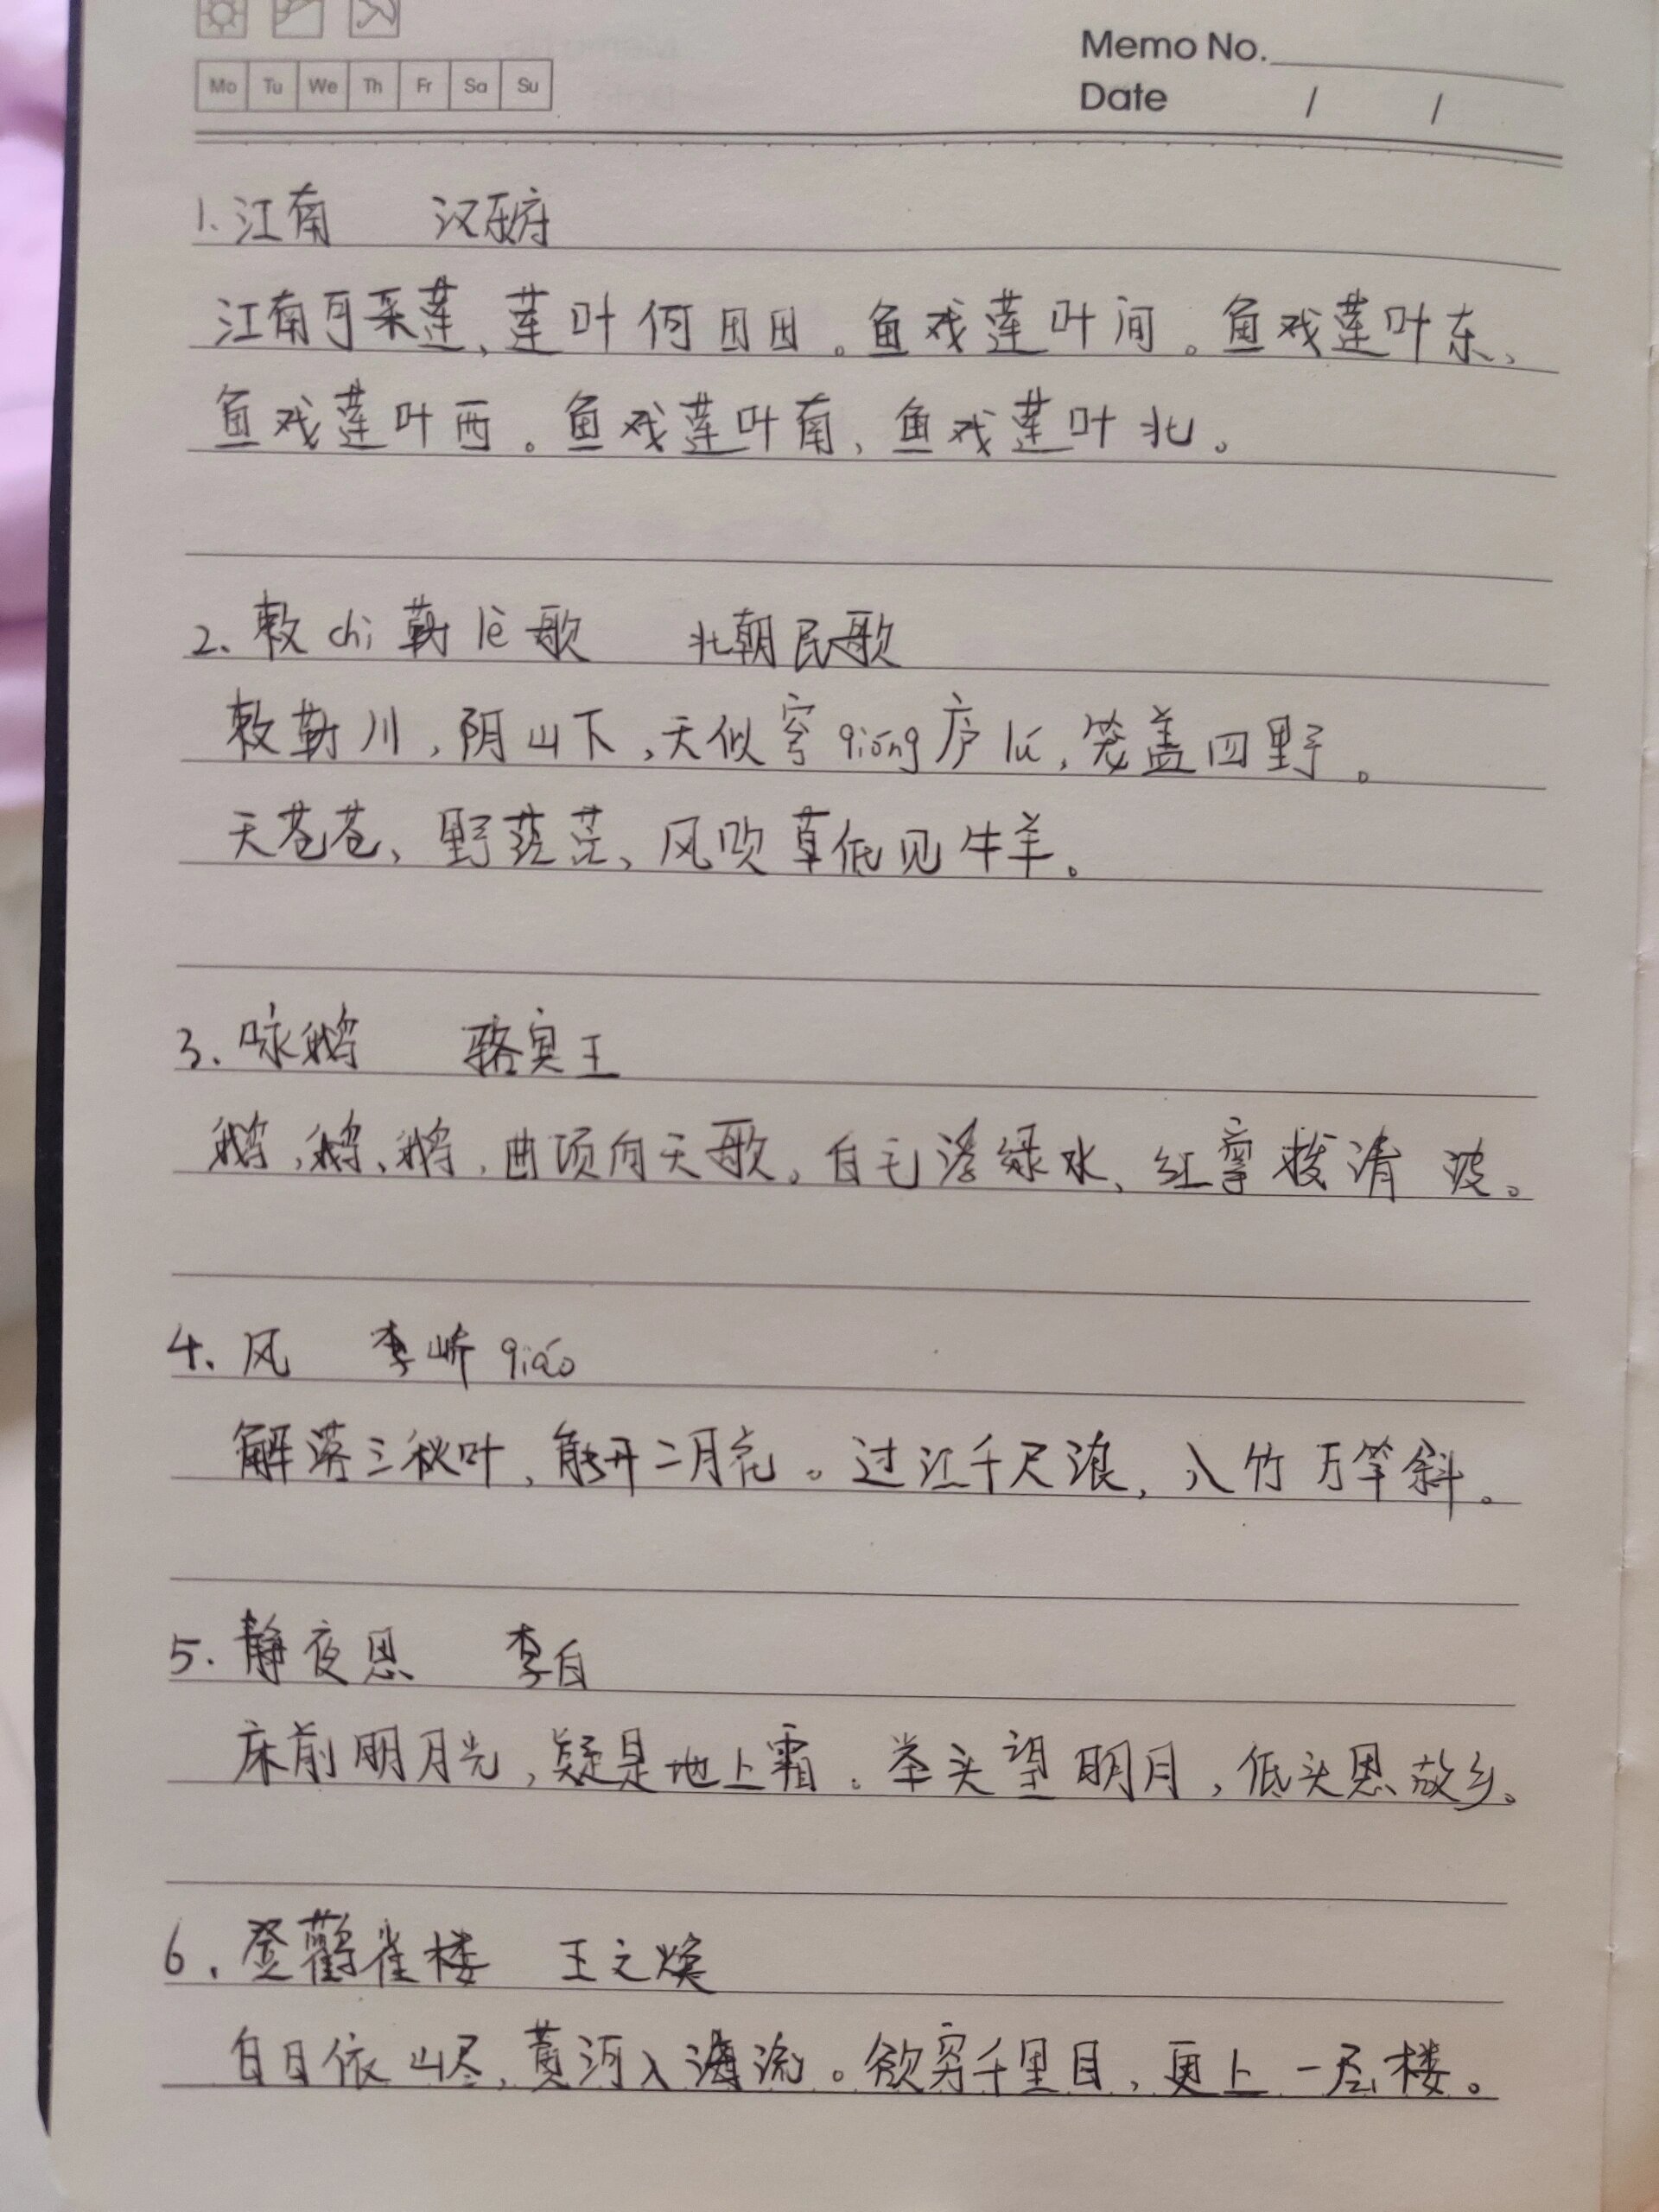 Mo Tu We Th Fr Sa Su
Memo No.
Date / /
1.江南 汉乐府
江南可采莲、莲叶何田田。鱼戏莲叶间。鱼戏莲叶东、
鱼戏莲叶西。鱼戏莲叶南、鱼戏莲叶北。
2.敕chì勒lè歌 北朝民歌
敕勒川,阴山下,天似穹qióng庐lú,笼盖四野。
天苍苍、野茫茫、风吹草低见牛羊。
3.咏鹅 骆宾王
鹅,鹅、鹅,曲项向天歌。白毛浮绿水、红掌拨清波。
4.风 李峤qiáo
解落三秋叶,能开二月花。过江千尺浪,入竹万竿斜。
5.静夜思 李白
床前明月光,疑是地上霜。举头望明月,低头思故乡。
6.登鹳雀楼 王之焕
白日依山尽,黄河入海流。欲穷千里目,更上一层楼。